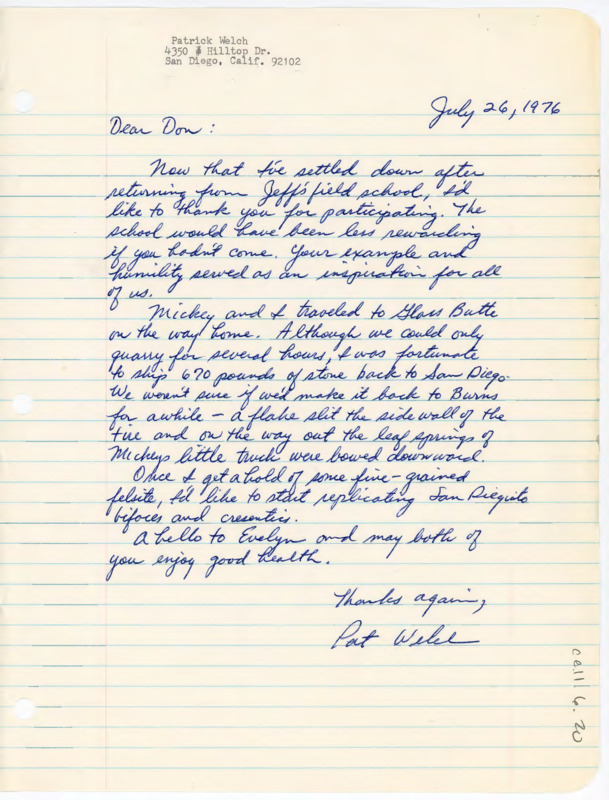 Patrick Welch
4350 Hilltop Dr.
San Diego, Calif. 92102
July 26, 1976
Dear Don:
Now that I've settled down after
returning from Jeff's field school, I'd
like to thank you for participating. The
school would have been less rewarding
if you hadn't come. Your example and
humility served as an inspiration for all
of us.
Mickey and I traveled to Glass Butte
on the way home. Although we could only
quarry for several hours, I was fortunate
to ship 670 pounds of stone back to San Diego.
We weren't sure if we'd make it back to Burns
for awhile – a flake slit the side wall of the
tire and on the way out the leaf springs of
Mickeys little truck were bowed downward.
Once I get ahold of some fine-grained
felsite, I'd like to start replicating San Dieguito
bifaces and crescentics.
A hello to Evelyn and may both of
you enjoy good health.
Thanks again,
Pat Welch
call 6.20